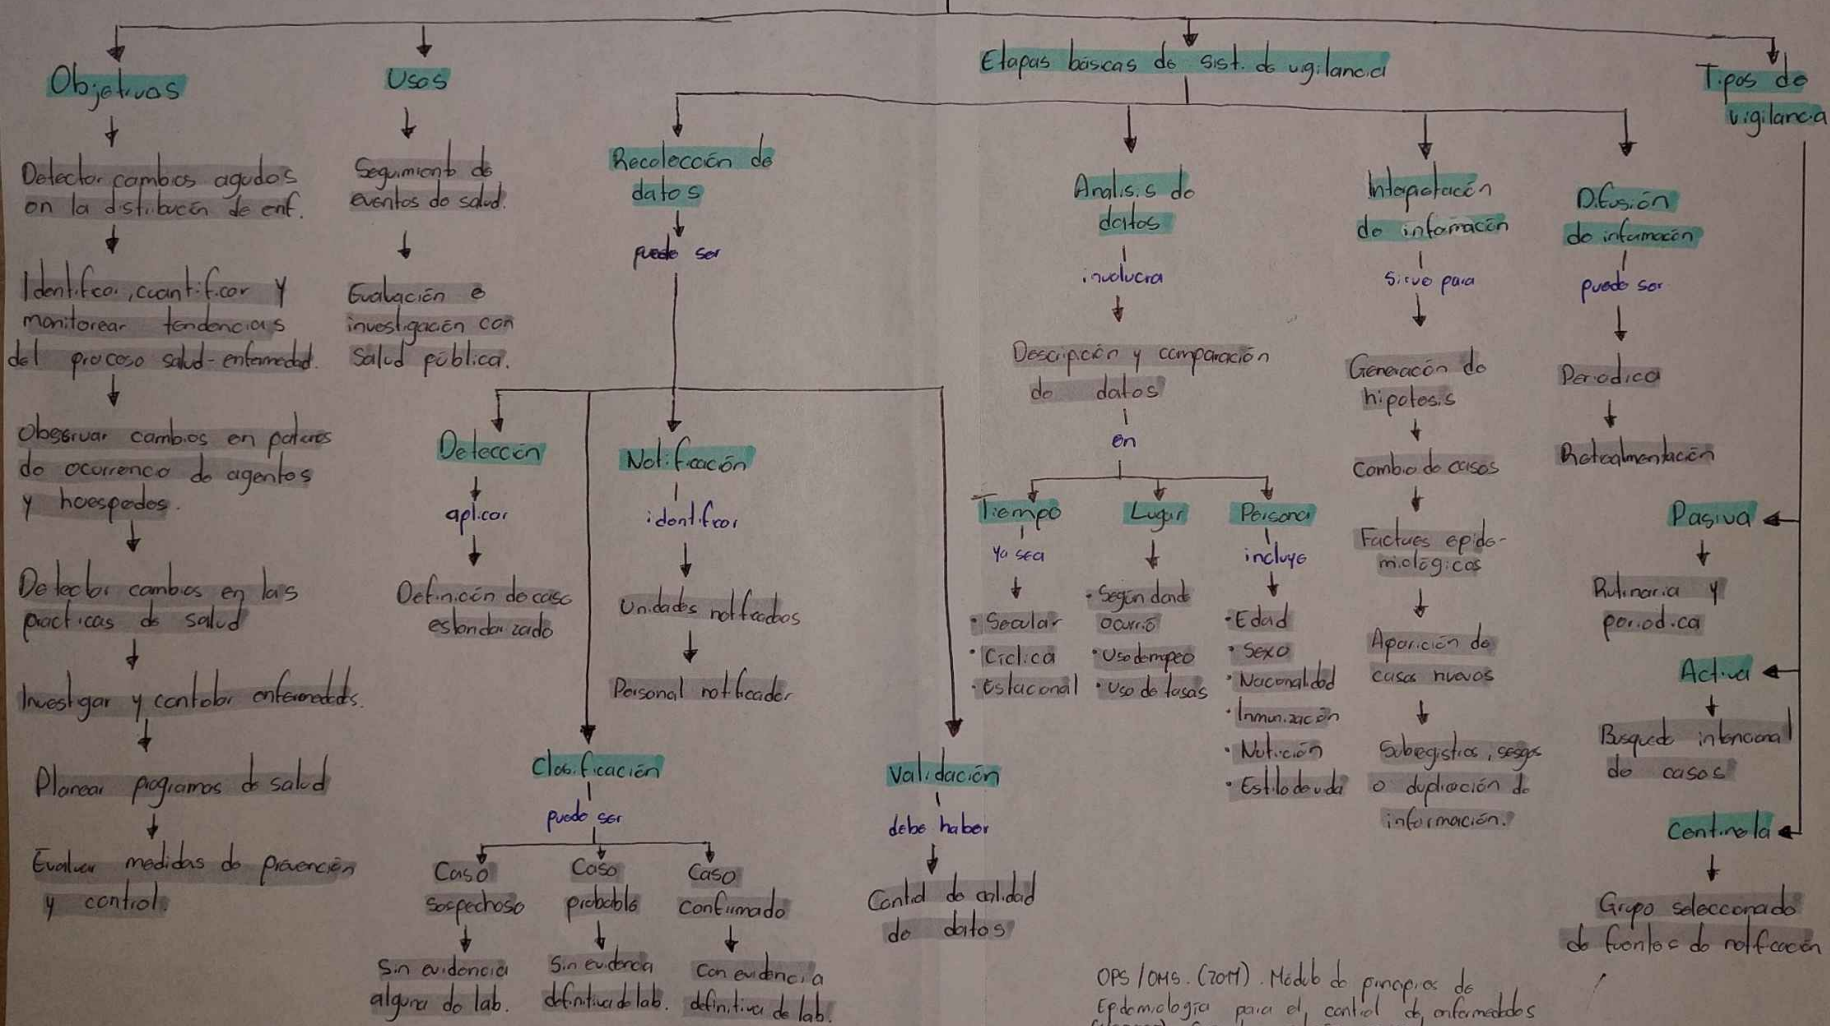 Objetivos
Detectar cambios agudos
en la distibución de enf.
Identificar, cuantificar y
monitorear tendencias
del proceso salud-enfermedad.
Observar cambios en patrones
de ocurrencia de agentes
y huespedes.
Detectar cambios en las
practicas de salud
Investigar y controlar enfermedades.
Planear programas de salud
Evaluar medidas de prevención
y control.
Usos
Seguimiento de
eventos de salud.
Evaluación e
investigación con
salud pública.
Etapas básicas de sist. de vigilancia
Recolección de
datos
puede ser
Detección
aplicar
Definición de caso
estandarizado
Clasificación
puede ser
Caso
sospechoso
Sin evidencia
alguna de lab.
Caso
probable
Sin evidencia
definitiva de lab.
Caso
confirmado
Con evidencia
definitiva de lab.
Notificación
identificar
Unidades notificadas
Personal notificador
Validación
debe haber
Control de calidad
de datos
Analisis de
datos
involucra
Descripción y comparación
de datos
en
Tiempo
ya sea
• Secular
• Ciclica
• Estacional
Lugar
• Según donde
ocurrió
• Uso de mapeo
• Uso de tasas
Persona
incluye
• Edad
• Sexo
• Nacionalidad
• Inmunización
• Nutrición
• Estilo de vida
Interpretación
de información
sirve para
Generación de
hipotesis
Cambio de casos
Factores epide-
miológicos
Aparición de
casos nuevos
Subregistros, sesgos
o duplicación de
información.
Difusión
de información
puede ser
Periodica
Retroalimentación
Tipos de
vigilancia
Pasiva
Rutinaria y
periodica
Activa
Busqueda intencional
de casos
Centinela
Grupo seleccionado
de fuentes de notificación
OPS/OMS. (2011). Modulo de principios de
Epidemiología para el control de enfermedades